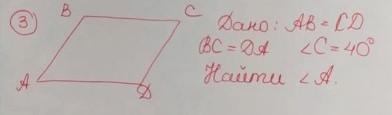 3
B C
A D
Дано: AB = CD
BC = DA ∠C = 40°
Найти ∠A.